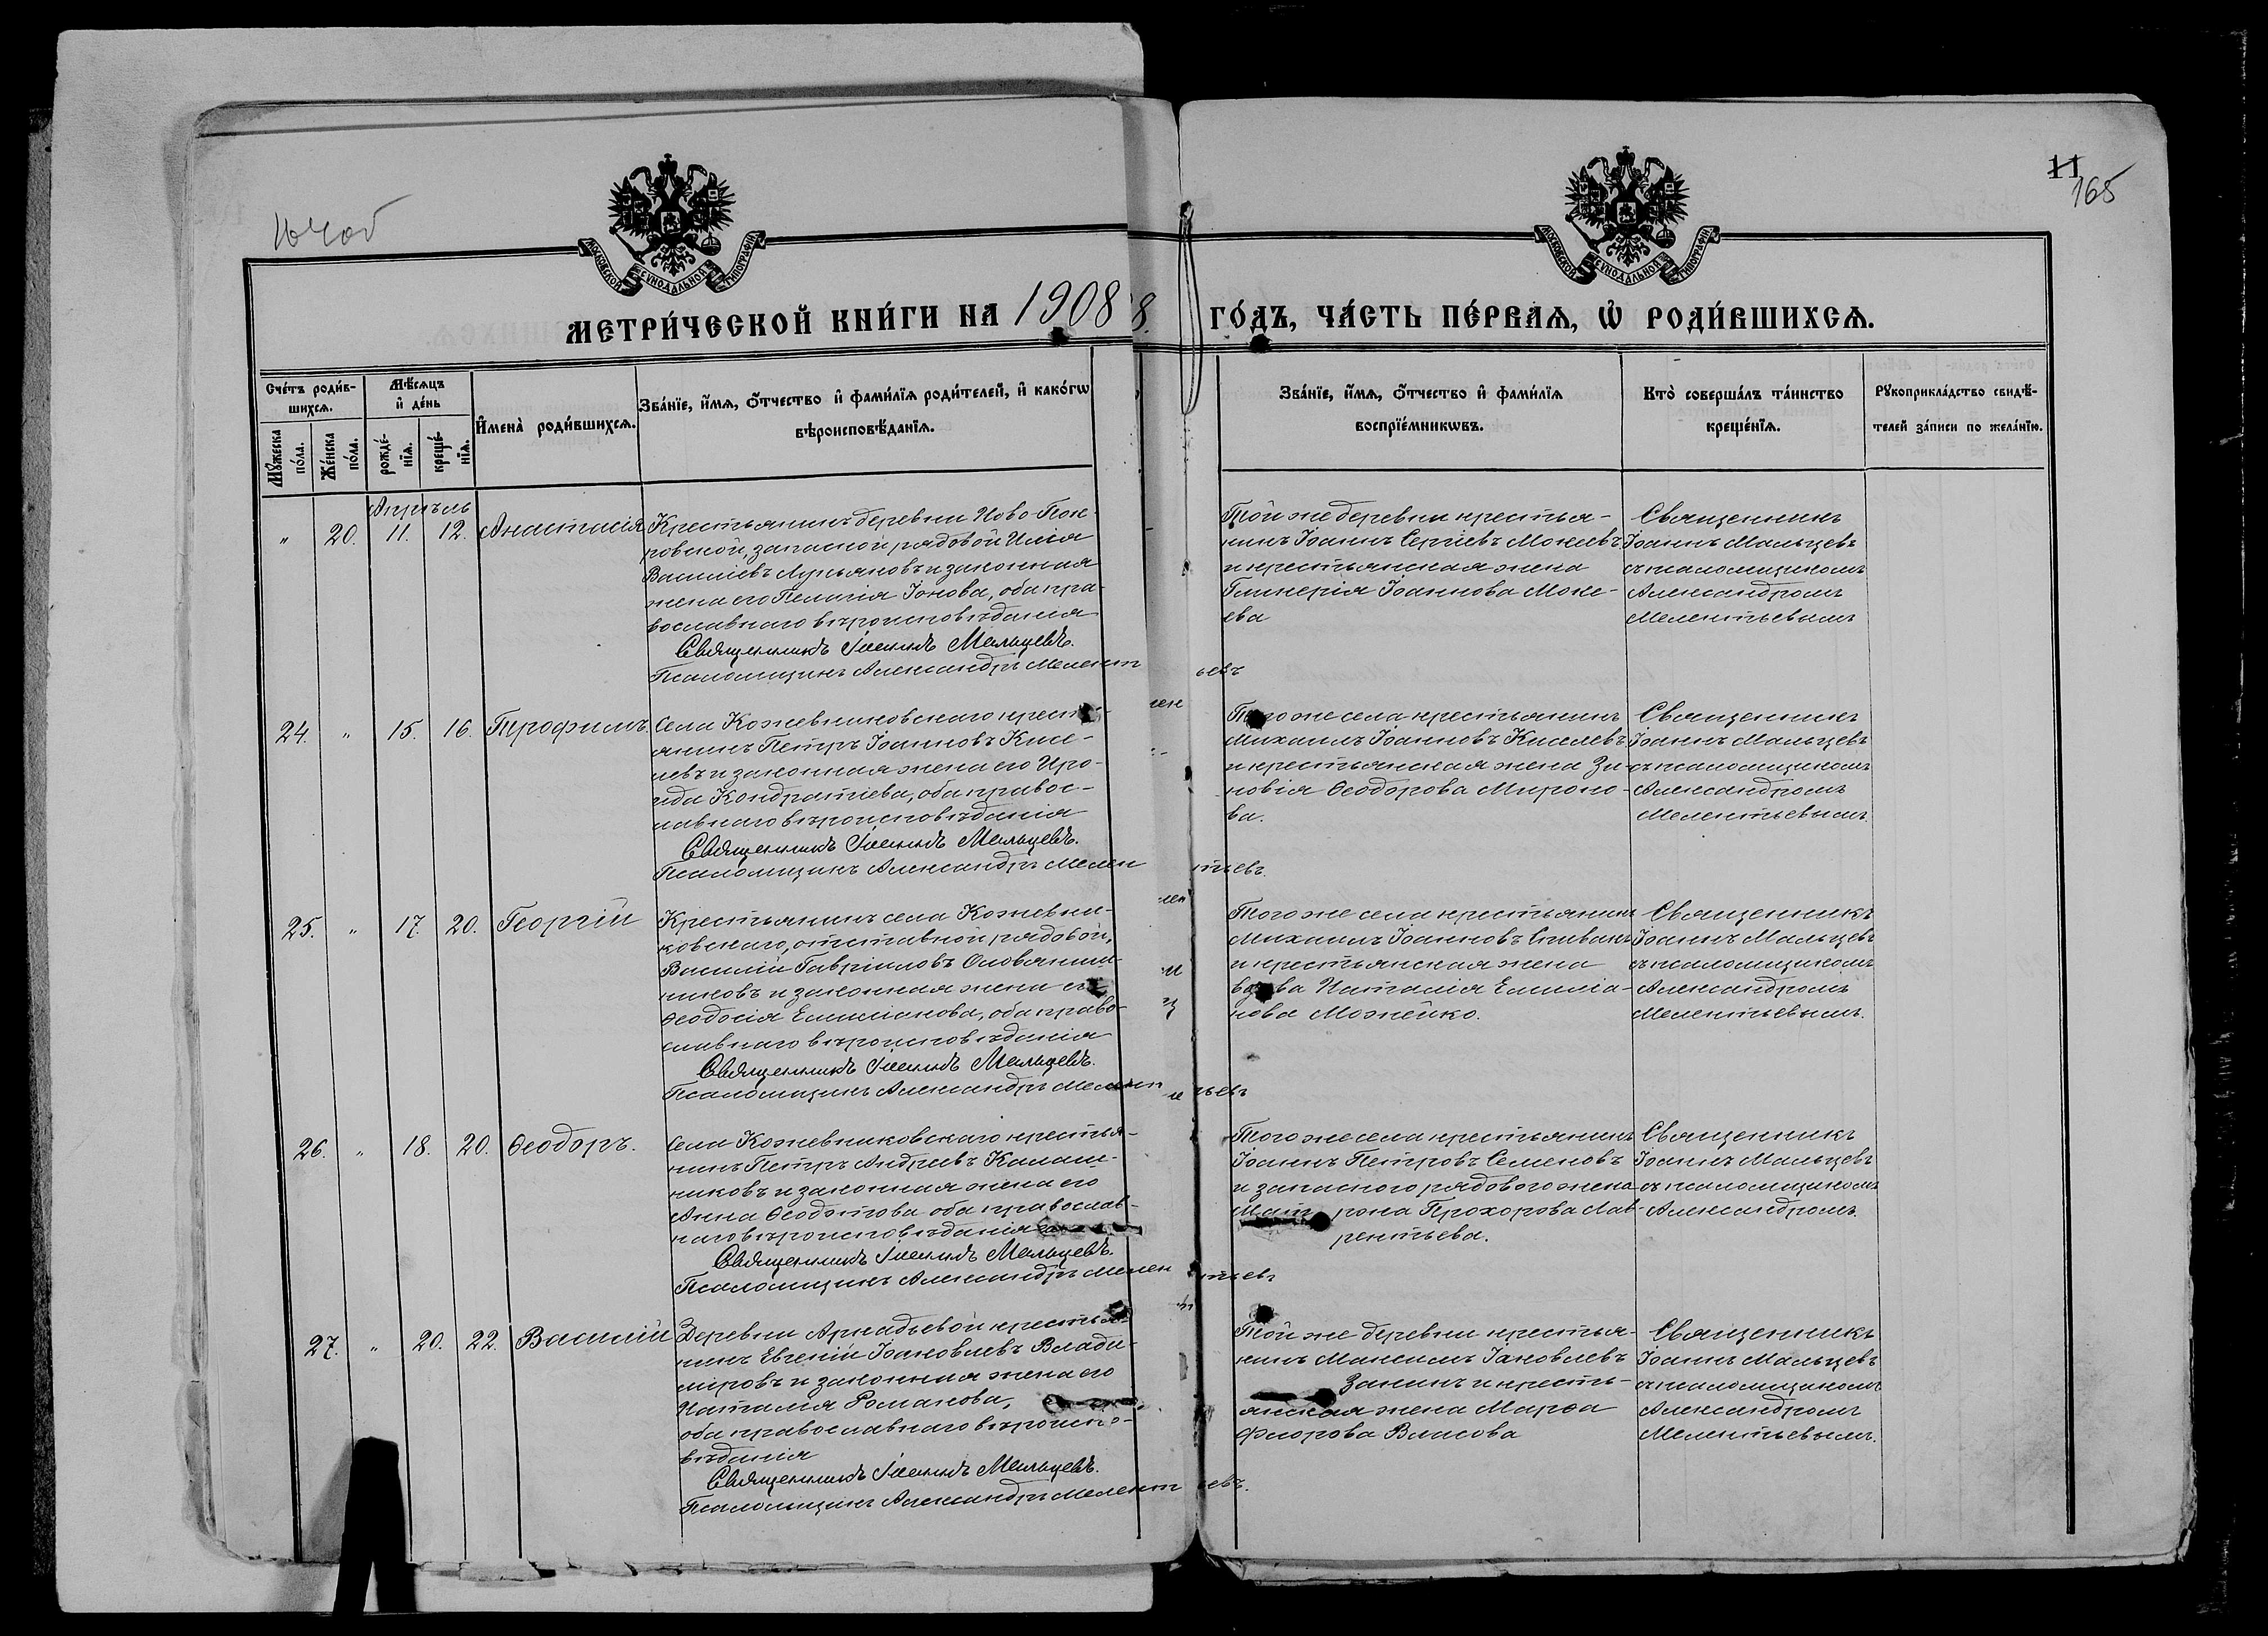 164об
11
165
МОСКОВСКОЙ СѴНОДАЛЬНОЙ ТИПОГРАФІИ
МОСКОВСКОЙ СѴНОДАЛЬНОЙ ТИПОГРАФІИ
МЕТРИ́ЧЕСКОЙ КНИ́ГИ НА 1908 8. ГО́ДЪ, ЧА́СТЬ ПЕ́РВАѦ, Ѡ҆ РОДИ́ВШИХСѦ.
Сче́тъ роди́в-
шихсѧ.
Мꙋ́жеска по́ла.
Же́нска по́ла.
Мѣ́сѧцъ
и҆ де́нь
рожде́-
нїѧ.
креще́-
нїѧ.
И҆мена̀ роди́вшихсѧ.
Зва́нїе, и҆́мѧ, ѻ҆́тчество и҆ фами́лїѧ роди́телей, и҆ како́гѡ
вѣроисповѣ́данїѧ.
Зва́нїе, и҆́мѧ, ѻ҆́тчество и҆ фами́лїѧ
воспрїе́мникѡвъ.
Кто̀ соверша́лъ та́инство
креще́нїѧ.
Рꙋкоприкла́дство свидѣ́-
телей за́писи по жела́нїю.
Апрѣль
" 20. 11. 12. Анастасія
Крестьянинъ деревни Ново-Пок-
ровской, запасной рядовой Илья
Василіевъ Лукьяновъ и законная
жена его Пелагія Іонова, оба пра-
вославнаго вѣроисповѣданія
Священникъ Іоаннъ Мальцевъ.
Псаломщикъ Александръ Мелентьевъ
Той же деревни крестья-
нинъ Іоаннъ Сергіевъ Мокѣевъ
и крестьянская жена
Гликерія Іоаннова Моке-
ева
Священникъ
Іоаннъ Мальцевъ
съ псаломщикомъ
Александромъ
Мелентьевымъ
24. " 15. 16. Трофимъ.
Села Кожевниковскаго крестья-
янинъ Петръ Іоанновъ Кисе-
левъ и законная жена его Иро-
ида Кондратіева, оба правос-
лавнаго вѣроисповѣданія
Священникъ Іоаннъ Мальцевъ.
Псаломщикъ Александръ Мелентьевъ.
Того же села крестьянинъ
Михаилъ Іоанновъ Киселевъ
и крестьянская жена Зи-
новія Ѳеодорова Мироно-
ва.
Священникъ
Іоаннъ Мальцевъ
съ псаломщикомъ
Александромъ
Мелентьевымъ.
25. " 17. 20. Георгій
Крестьянинъ села Кожевни-
ковскаго, отставной рядовой,
Василій Гавріиловъ Оловяниш-
никовъ и законная жена его
Ѳеодосія Емиліанова, оба право-
славнаго вѣроисповѣданія
Священникъ Іоаннъ Мальцевъ.
Псаломщикъ Александръ Мелентьевъ
Того же села крестьянинъ
Михаилъ Іоанновъ Спивакъ
и крестьянская жена
вдова Наталія Емиліа-
нова Можейко.
Священникъ
Іоаннъ Мальцевъ
съ псаломщикомъ
Александромъ
Мелентьевымъ.
26. " 18. 20. Ѳеодоръ.
Села Кожевниковскаго крестья-
нинъ Петръ Андреевъ Калаш-
никовъ и законная жена его
Анна Ѳеодотова оба православ-
наго вѣроисповѣданія
Священникъ Іоаннъ Мальцевъ.
Псаломщикъ Александръ Мелентьевъ
Того же села крестьянинъ
Іоаннъ Петровъ Семеновъ
и запасного рядового жена
Матрона Прохорова Лав-
рентьева.
Священникъ
Іоаннъ Мальцевъ
съ псаломщикомъ
Александромъ.
27. " 20. 22. Василій
Деревни Аркадьевой крестья-
нинъ Евгеній Іаковлевъ Влади-
міровъ и законная жена его
Наталія Романова,
оба православнаго вѣроиспо-
вѣданія
Священникъ Іоаннъ Мальцевъ.
Псаломщикъ Александръ Мелентьевъ.
Той же деревни крестья-
нинъ Максимъ Іаковлевъ
Занинъ и кресть-
янская жена Марѳа
Флорова Власова
Священникъ
Іоаннъ Мальцевъ
съ псаломщикомъ
Александромъ
Мелентьевымъ.